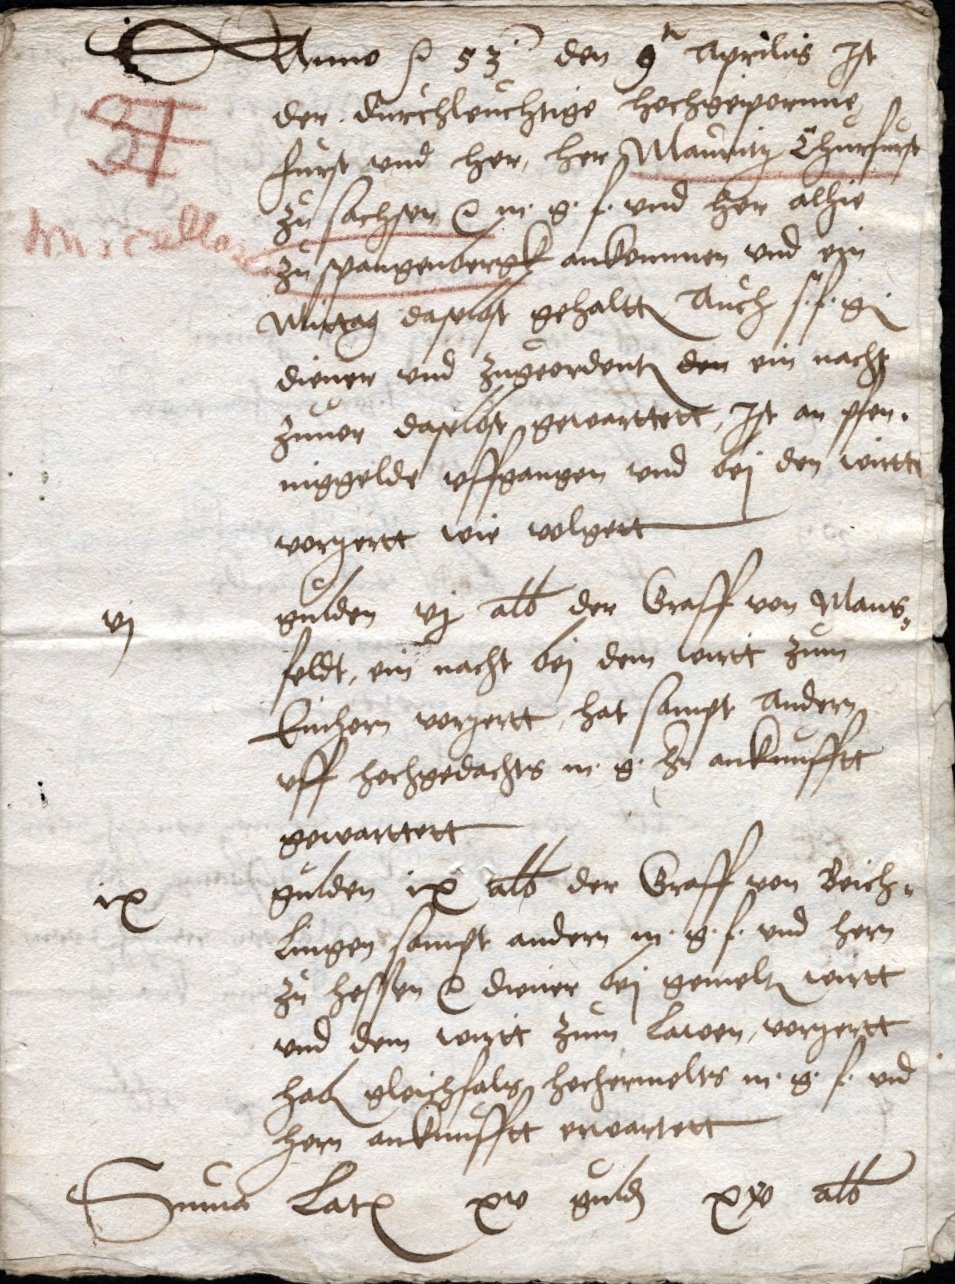 Anno &c 53 den 9ten Aprilis Ist
der durchleuchtige hochgepornne
furst vnd her, her Mauritz Churfurst
zu sachsen &c m. g. f. vnd her alhie
zu spangenbergk ankommen vnd ein
Mittag daselbst gehaltt Auch s. f. g.
diener vnd zugeordent den ein nacht
zuuor daselbst gewarttett, Ist an pfen-
niggelde vffgangen vnd bej den wirtt
vorzertt wie volgett
vj gulden vj alb der Graff von Mans-
feldt, ein nacht bej dem wirtt zum
Einhorn vorzertt, hat sampt Andern
vff hochgedachts m. g. h ankunfftt
gewarttett
ix gulden ix alb der Graff von Beich-
Lingen sampt andern m. g. f. vnd hern
zu hessen &c diener bej gemelt wirtt
vnd dem wirtt zum Lawen, vorzertt
hab gleichfals hochermelts m. g. f. vnd
hern ankunfftt erwartett
Summa Lat xv guld xv alb